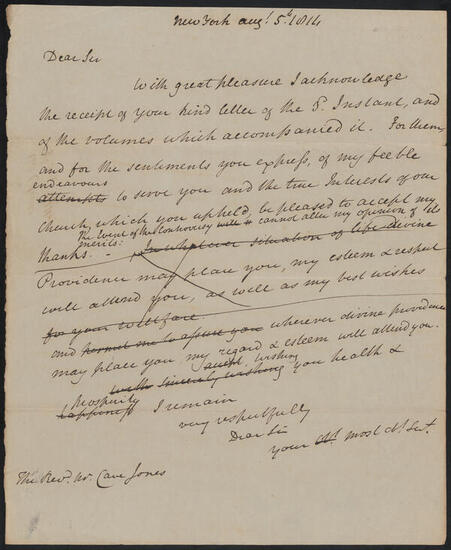 New York Augt. 5th. 1814
Dear Sir
With great pleasure I acknowledge
the receipt of your kind letter of the 5. Instant, and
of the volumes which accompanied it. For them,
and for the sentiments you express, of my feeble
endeavours
attempts to serve you and the true Interests of our
Church, which you upheld, be pleased to accept my
The Event of the Controversy will cannot alter my opinion of its
merits:
thanks. - In whatever situation of life divine
Providence may place you, my esteem & respect
will attend you, as well as my best wishes
for your wellfare.
and permit me to assure you wherever divine providence
may place you, my regard & esteem will attend you.
wishing
with sincerely wishing you health &
prosperity
happiness I remain
very respectfully
Dear Sir
your Ob. most Ob. Sert.
The Revd. Mr. Cave Jones